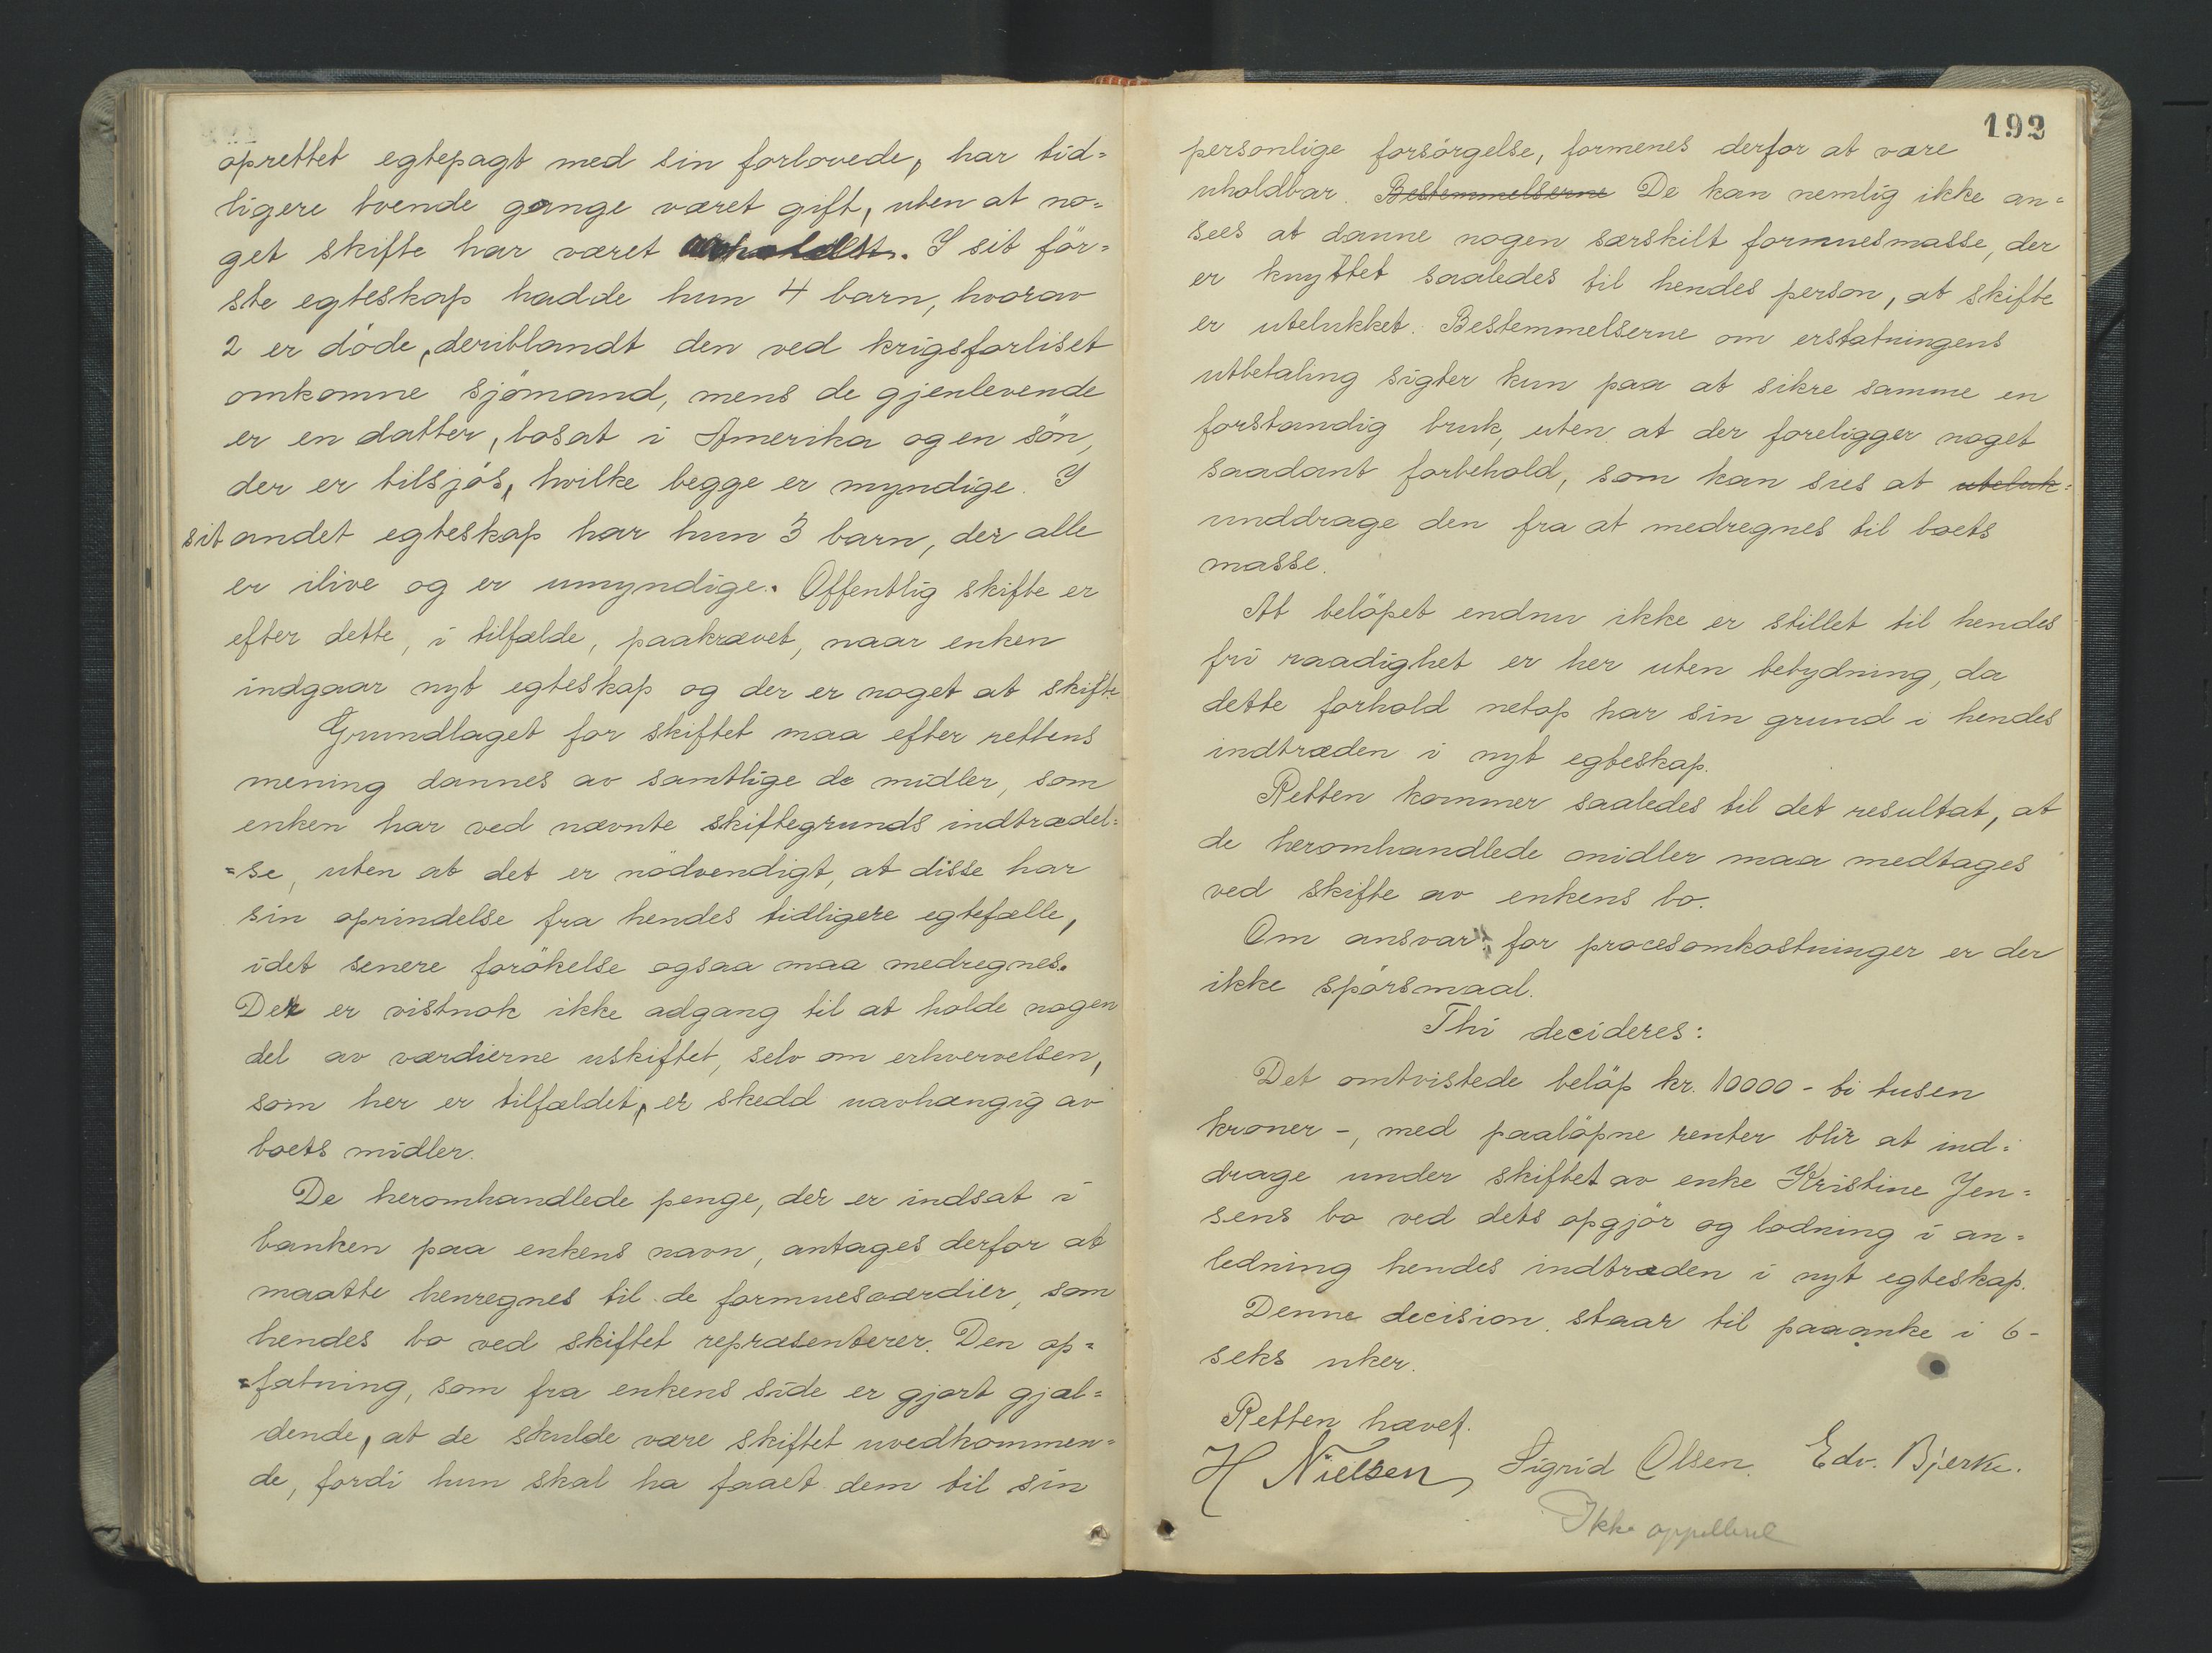 oprettet egtepagt med sin forlovede, har tid=
ligere tvende gange været gift, uten at no=
get skifte har været avholdt. I sit för=
ste egteskap hadde hun 4 barn, hvorav
2 er döde, deriblandt den ved krigsforliset
omkomne sjömand, mens de gjenlevende
er en datter, bosat i Amerika og en sön,
der er tilsjös, hvilke begge er myndige. I
sit andet egteskap har hun 3 barn, der alle
er ilive og er umyndige. Offentlig skifte er
efter dette, i tilfælde, paakrævet, naar enken
indgaar nyt egteskap og der er noget at skifte.
Grundlaget for skiftet maa efter rettens
mening dannes av samtlige de midler, som
enken har ved nævnte skiftegrunds indtrædel=
=se, uten at det er nödvendigt, at disse har
sin oprindelse fra hendes tidligere egtefælle,
idet senere forökelse ogsaa maa medregnes.
Der er vistnok ikke adgang til at holde nogen
del av værdierne uskiftet, selv om erhvervelsen,
som her er tilfældet, er skedd uavhængig av
boets midler.
De heromhandlede penge, der er indsat i
banken paa enkens navn, antages derfor at
maatte henregnes til de formuesværdier, som
hendes bo ved skiftet repræsenterer. Den op=
=fatning, som fra enkens side er gjort gjæl=
dende, at de skulde være skiftet uvedkommen=
de, fordi hun skal ha faaet dem til sin
192
personlige forsörgelse, formenes derfor at være
uholdbar. Bestemmelserne De kan nemlig ikke an=
sees at danne nogen særskilt formuesmasse, der
er knyttet saaledes til hendes person, at skifte
er utelukket. Bestemmelserne om erstatningens
utbetaling sigter kun paa at sikre samme en
forstandig bruk, uten at der foreligger noget
saadant forbehold, som kan sies at uteluk=
unddrage den fra at medregnes til boets
masse.
At belöpet endnu ikke er stillet til hendes
fri raadighet er her uten betydning, da
dette forhold netop har sin grund i hendes
indtræden i nyt egteskap.
Retten kommer saaledes til det resultat, at
de heromhandlede midler maa medtages
ved skifte av enkens bo.
Om ansvar for procesomkostninger er der
ikke spörsmaal.
Thi decideres:
Det omtvistede belöp kr. 10000 - ti tusen
kroner -, med paalöpne renter blir at ind=
drage under skiftet av enke Kristine Jen=
sens bo ved dets opgjör og lodning i an=
ledning hendes indtræden i nyt egteskap.
Denne decision staar til paaanke i 6-
seks uker.
Retten hævet.
H Nielsen Sigrid Olsen. Edv. Bjerke.
Ikke appelleret